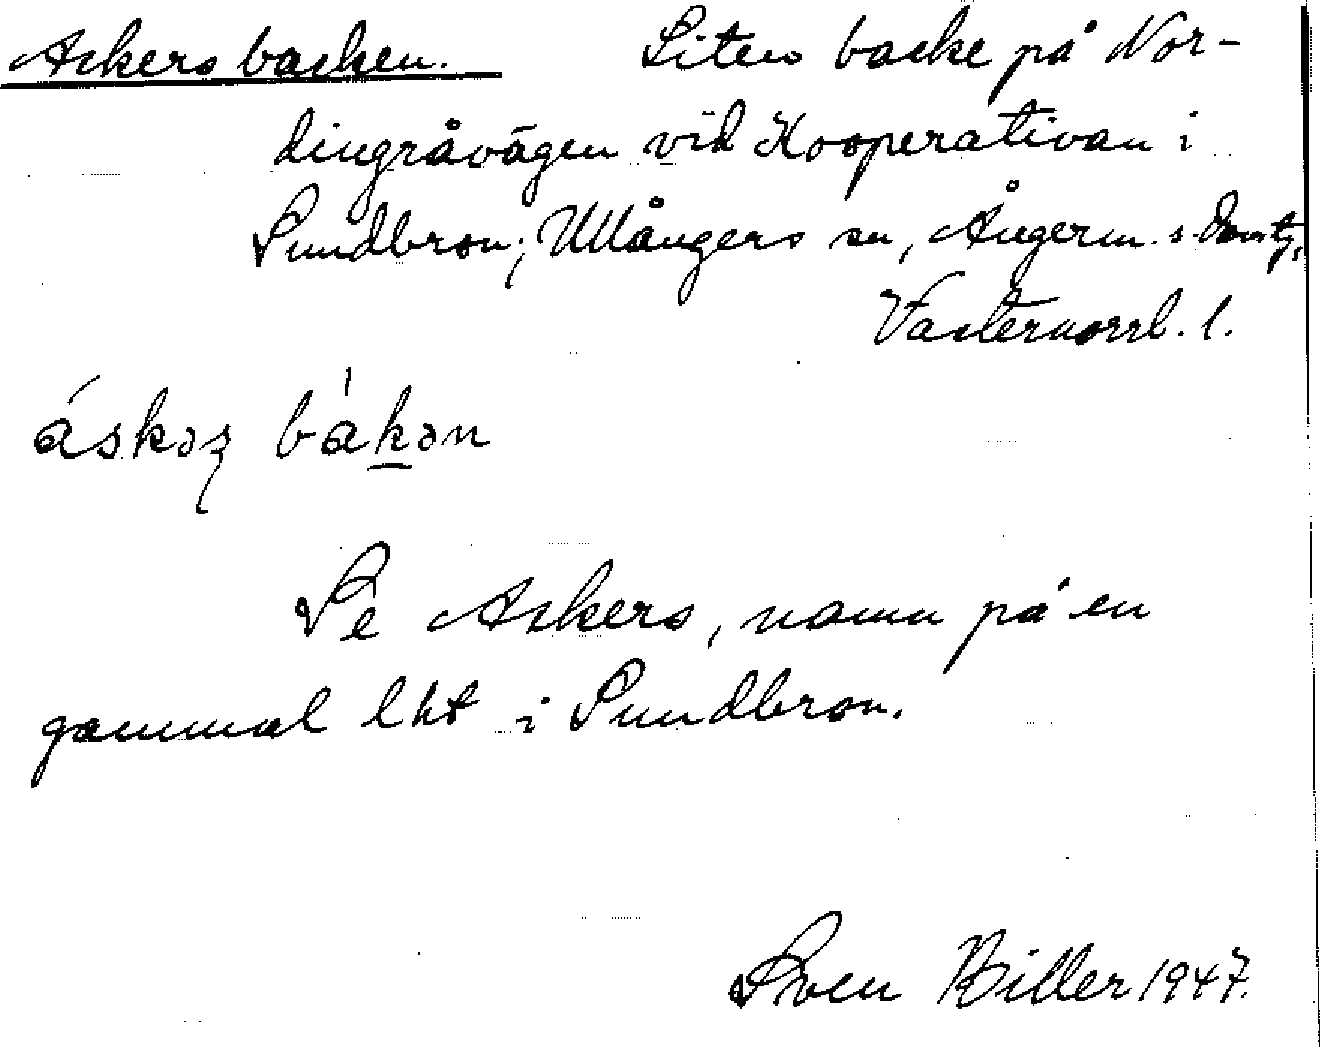 Askersbacken. Liten backe på Nor-
dingråvägen vid Kooperativan i
Sundbron, Ullångers sn, Ångerm.s domtg,
Västernorrl. l.
áskəʂ bàkən
Se Askers, namn på en
gammal lht i Sundbron.
Sven Biller 1947.